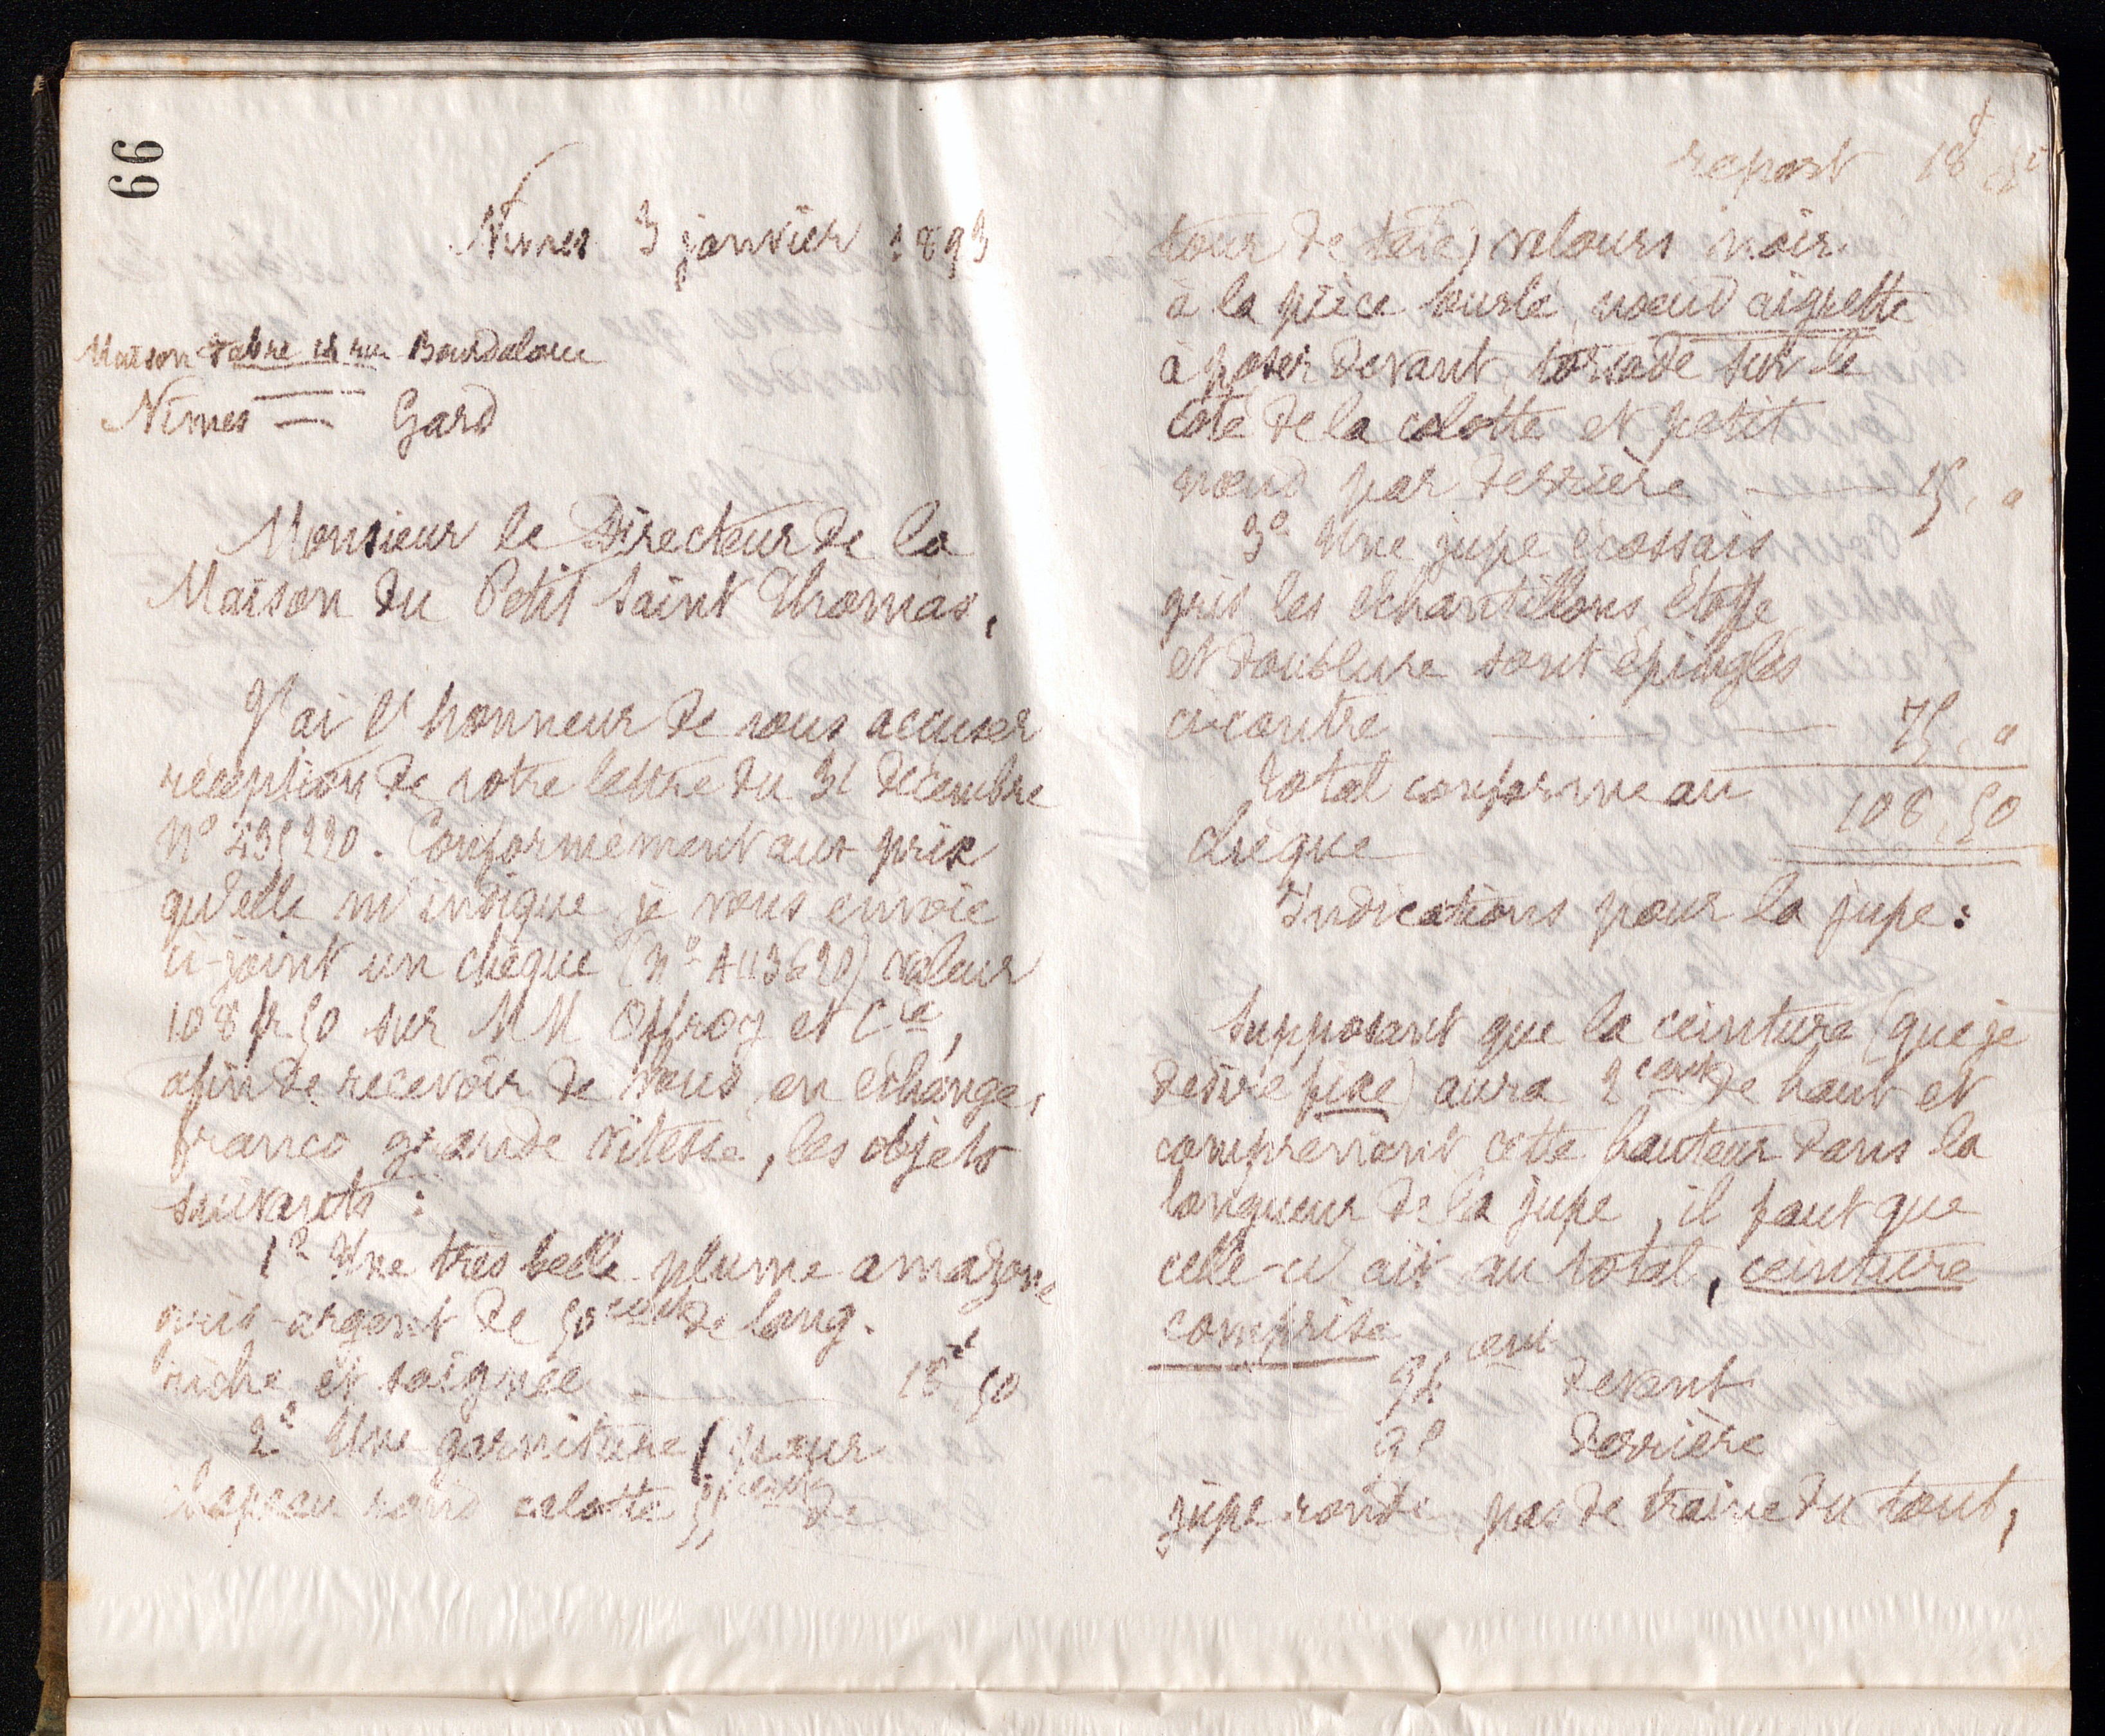 66
Nimes 3 janvier 1893
Maison Fabre 14 rue Bourdaloue
Nîmes — Gard
Monsieur le Directeur de la
Maison du Petit Saint Thomas,
J'ai l'honneur de vous accuser
réception de votre lettre du 31 décembre
N° 495220. Conformément aux prix
qu'elle m'indique je vous envoie
ci-joint un chèque (N° A113620) valeur
108 fr 50 sur MM Offroy et Cie,
afin de recevoir de vous, en échange,
franco grande vitesse, les objets
suivants :
1° Une très belle plume amazone
gris-argent de 50 cent de long.
riche et soignée — 18f 50
2° Une garniture (pour
chapeau rond calotte cent de
report 18f 50
tour de tête) velours noir
à la pièce ourlé, noeud aigrette
à poser devant, torsade sur le
côté de la calotte et petit
noeud par derrière — 15, "
3° Une jupe écossais
gris les échantillons étoffe
et doublure sont épinglés
ci-contre — 75, "
total conforme au
chèque 108,50
Indications pour la jupe :
Supposant que la ceinture (que je
désire fixe) aura 2 cent de haut et
comprenant cette hauteur dans la
longueur de la jupe, il faut que
celle-ci ait au total, ceinture
comprise
cent devant
derrière
jupe ronde, pas de traine du tout,